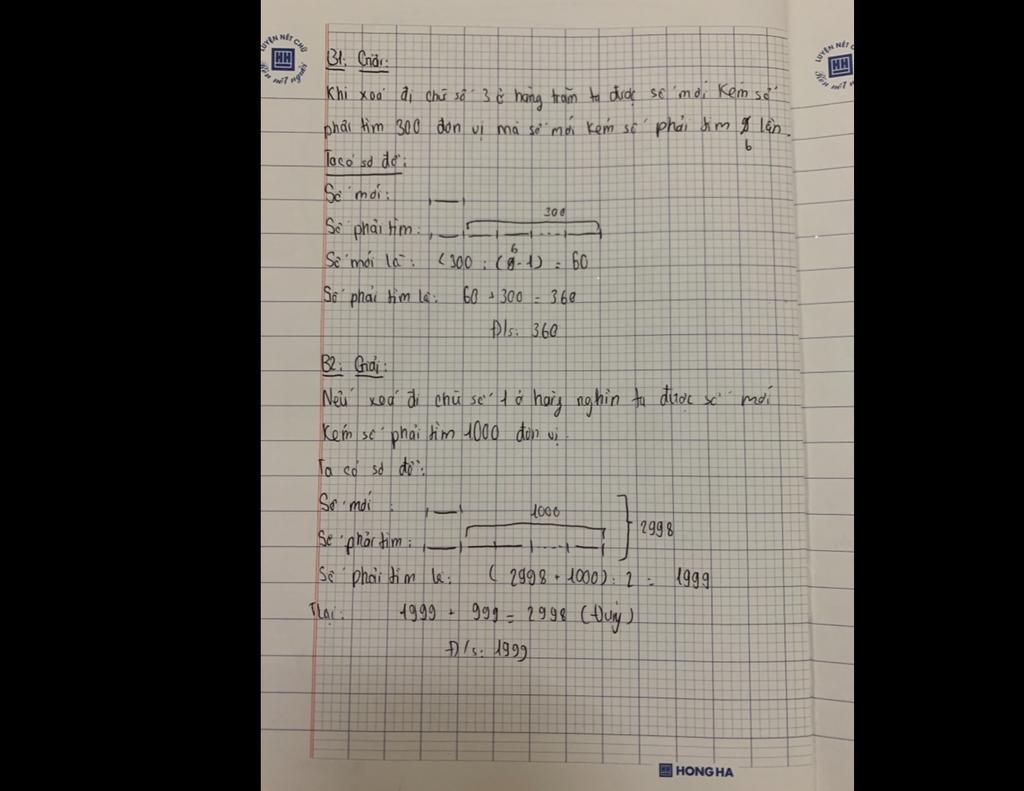 LUYỆN NÉT CHỮ
HH
Rèn nết người
LUYỆN NÉT C
HH
Rèn nết n
B1: Giải:
Khi xoá đi chữ số 3 ở hàng trăm ta được số mới kém số
phải tìm 300 đơn vị mà số mới kém số phải tìm lần.
6
Ta có sơ đồ:
Số mới:
300
Số phải tìm:
6
Số mới là: (300 : (9-1) = 60
Số phải tìm là: 60 + 300 = 360
Đ/s: 360
B2: Giải:
Nếu xoá đi chữ số 1 ở hàng nghìn ta được số mới
kém số phải tìm 1000 đơn vị.
Ta có sơ đồ:
Số mới :
1000
Số phải tìm:
2998
Số phải tìm là: (2998 + 1000) : 2 = 1999
Tlại: 1999 + 999 = 2998 (Đúng)
Đ/s: 1999
HH HONG HA